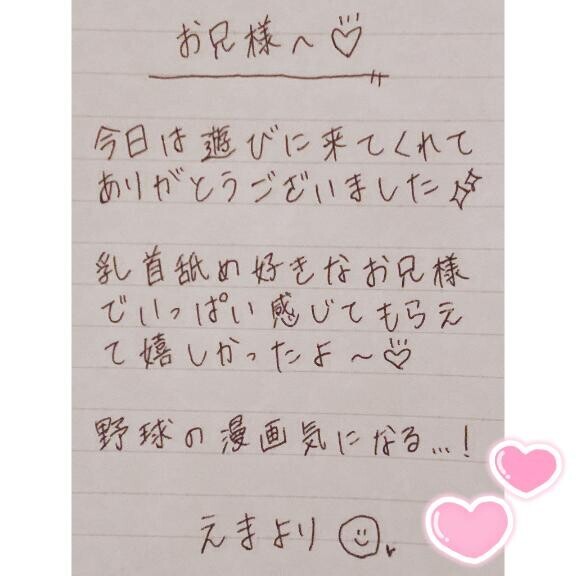 お兄様へ♡
今日は遊びに来てくれて
ありがとうございました✨
乳首舐め好きなお兄様
でいっぱい感じてもらえ
て嬉しかったよ〜♡
野球の漫画気になる...!
えまより☺